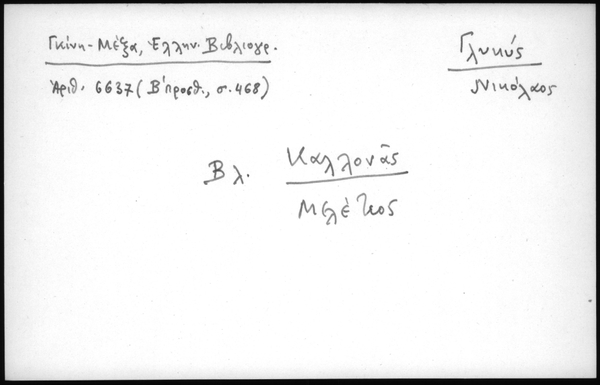 Γκίνη-Μέξα, Ἑλλην. Βιβλιογρ.
Ἀριθ. 6637 (Β' προσθ., σ. 468)
Γλυκύς
Νικόλαος
Βλ. Καλλονᾶς
Μελέτιος